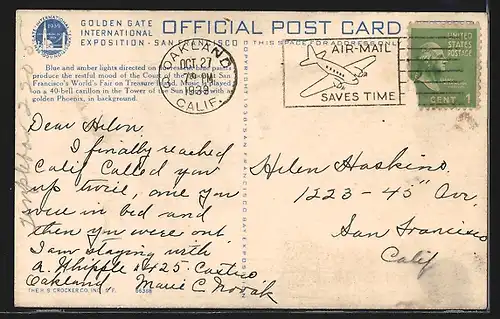 GOLDEN GATE
INTERNATIONAL
EXPOSITION - SAN FRANCISCO
OFFICIAL POST CARD
THIS SPACE FOR ADDRESS ONLY
Blue and amber lights directed on
produce the restful mood of the Court of the San
Francisco's World's Fair on Treasure played
on a 40-bell carillon in the Tower of the Sun with a
golden Phoenix, in background.
OAKLAND
OCT 27
PM
1939
CALIF.
AIR-MAIL
SAVES TIME
UNITED STATES
POSTAGE
CENT 1
Dear Helen,
I finally reached
Calif Called you
up twice, one you
were in bed and
then you were out.
I am staying with
A. Whipple 1425 Castro
Oakland Marie C. Novak
Helen Haskins
1223 - 45" Av,
San Francisco
Calif
COPYRIGHT 1938 SAN FRANCISCO BAY EXPOSITION
THE H.S. CROCKER CO., INC., S.F.